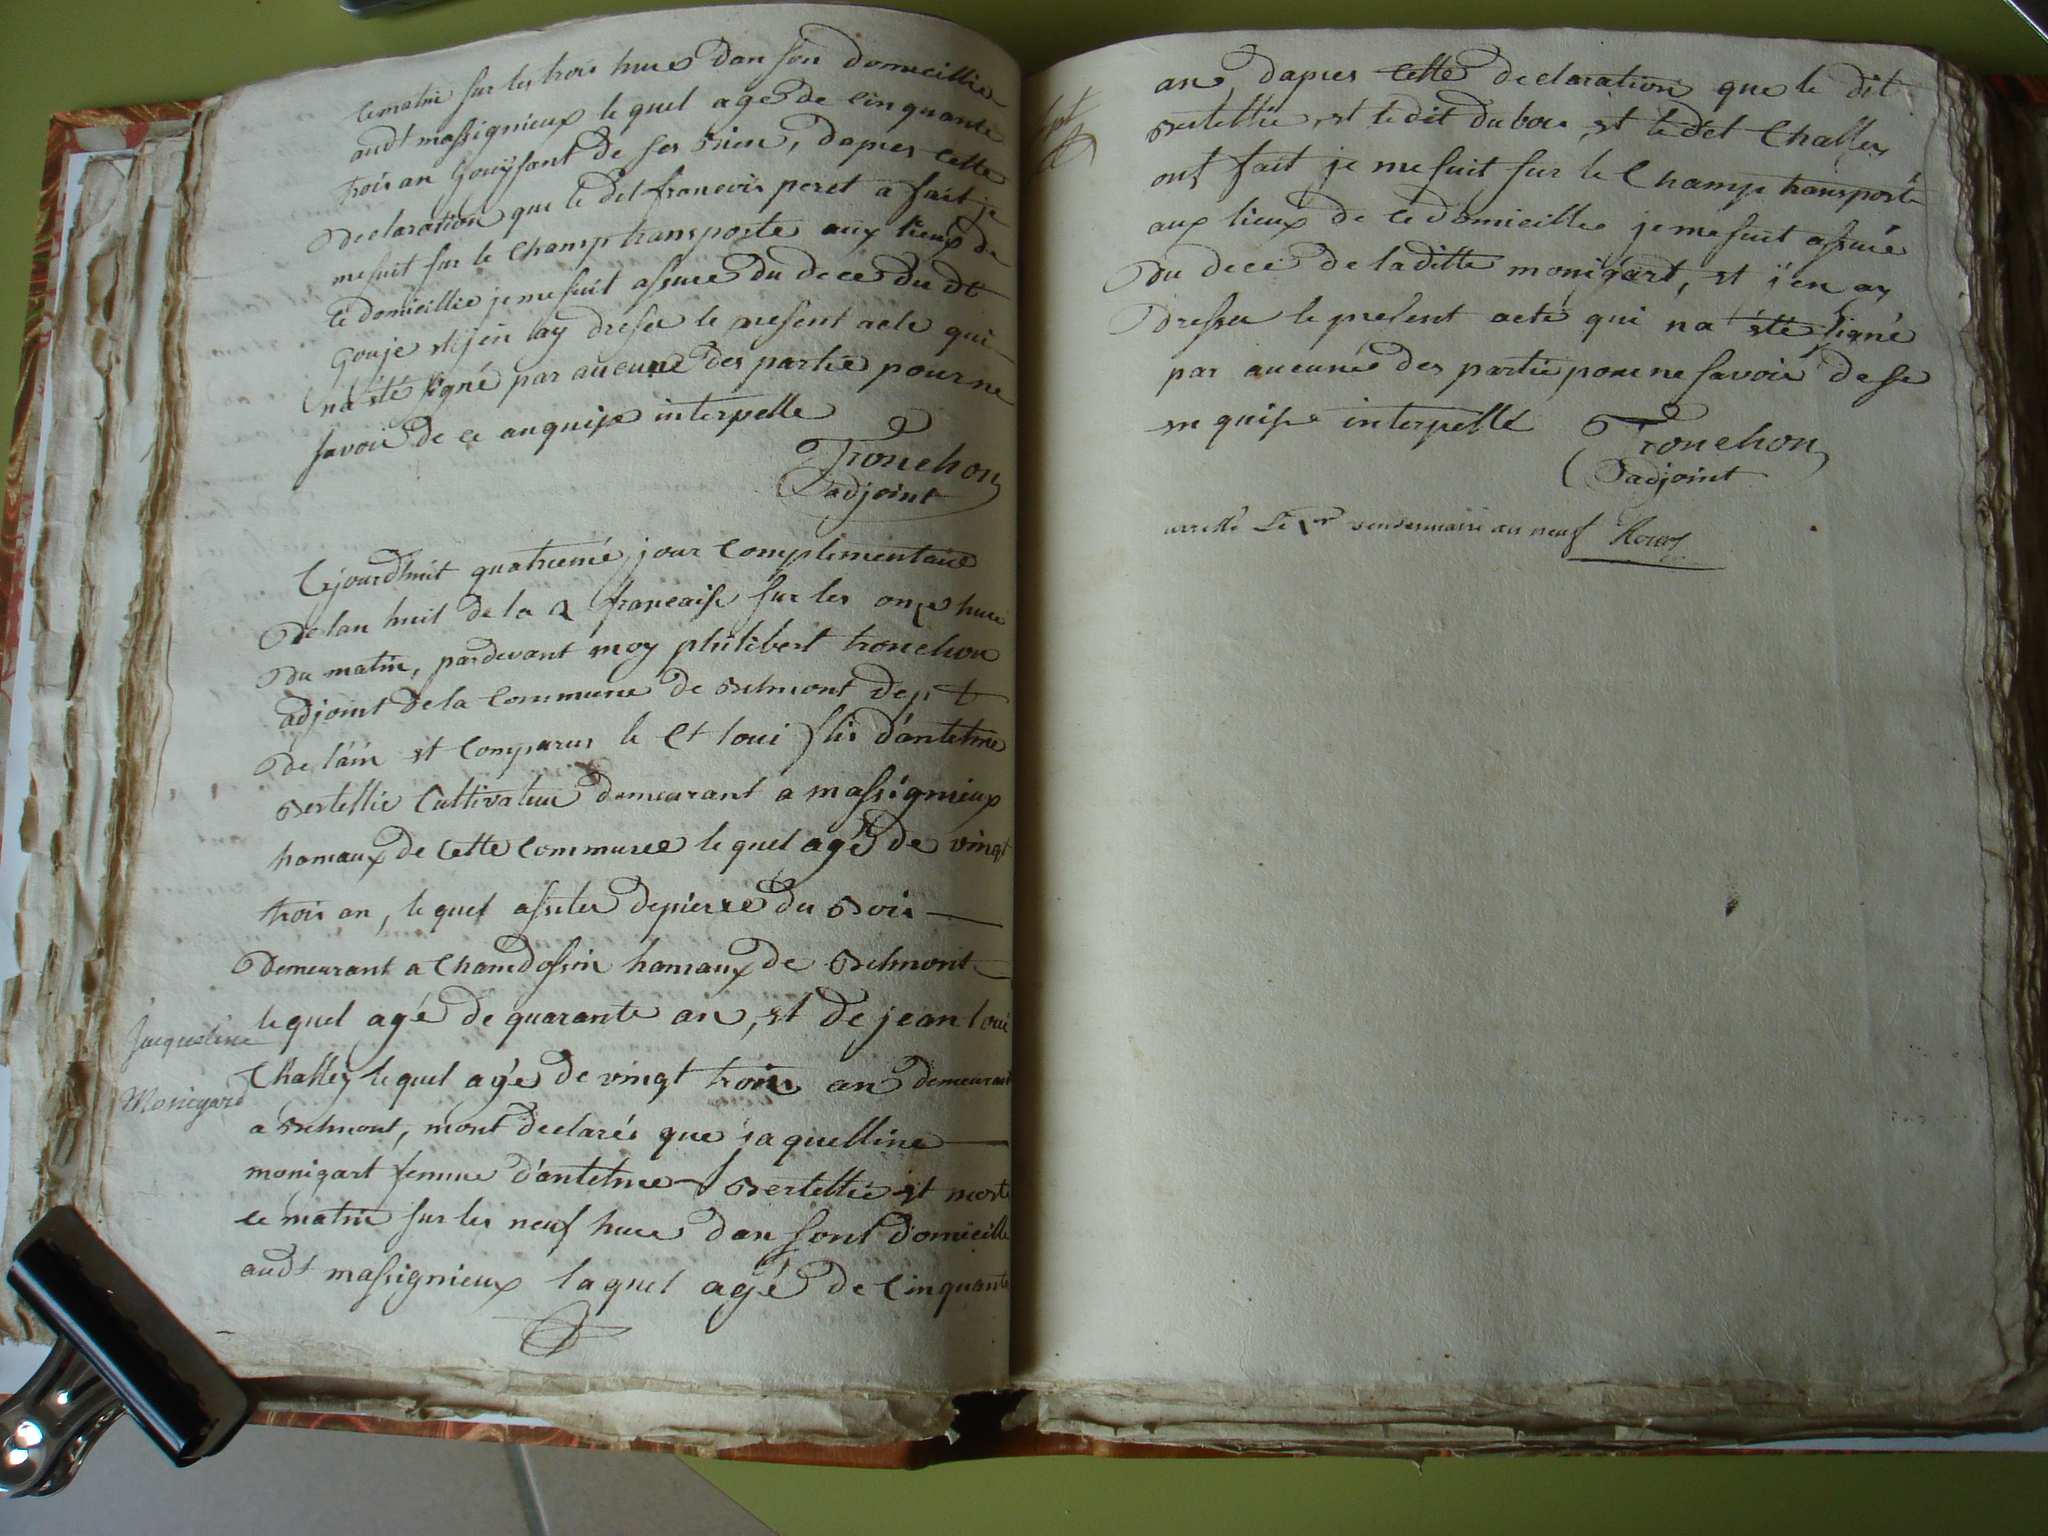 ce matin sur les trois hure dan son domicillie
audt massignieux le quel age de cinquante
trois an Gouyssant de ses bien, dapres cette
declaration que le dit francois peret a fait je
me suit sur le champ transporte aux lieux de
ce domicillie je me suit assure du dece du dt
Gouje et jen ay dresser le present acte qui
na été signé par aucune des partie pour ne
savoir de ce anquise interpelle
Tronchon
adjoint
Cejourdhuit quatrieme jour complimentaire
de lan huit de la R francaise sur les onze hure
du matin, pardevant moy philibert tronchon
adjoint de la commune de belmont dept
de l'ain et comparus le Ct loui flis d'antelme
bertellie cultivateur demeurant a massignieux
hamaux de cette commune le quel agé de vingt
trois an, le quel assiter de pierre du bois
demeurant a chamdossin hamaux de belmont
le quel agé de quarante an, et de jean loui
Jaqueline
Challey le quel agé de vingt trois an demeurant
Monigard
a belmont, mont declarés que jaquelline
monigart femme d'antelme bertellie et morte
ce matin sur les neuf hure dan sont domicille
audt massignieux la quel agé de cinquante
sept
an, dapres cette declaration que le dit
bertellie et le dit dubois et le dit Challey
ont fait je me suit sur le champ transporté
aux lieux de ce domicille je me suit assuré
du dece de la ditte monigart, et j'en ay
dresser le present acte qui na été signé
par aucune des partie pour ne savoir de se
en quise interpellé
Tronchon
adjoint
arretté Le 1er vendemiaire an neuf